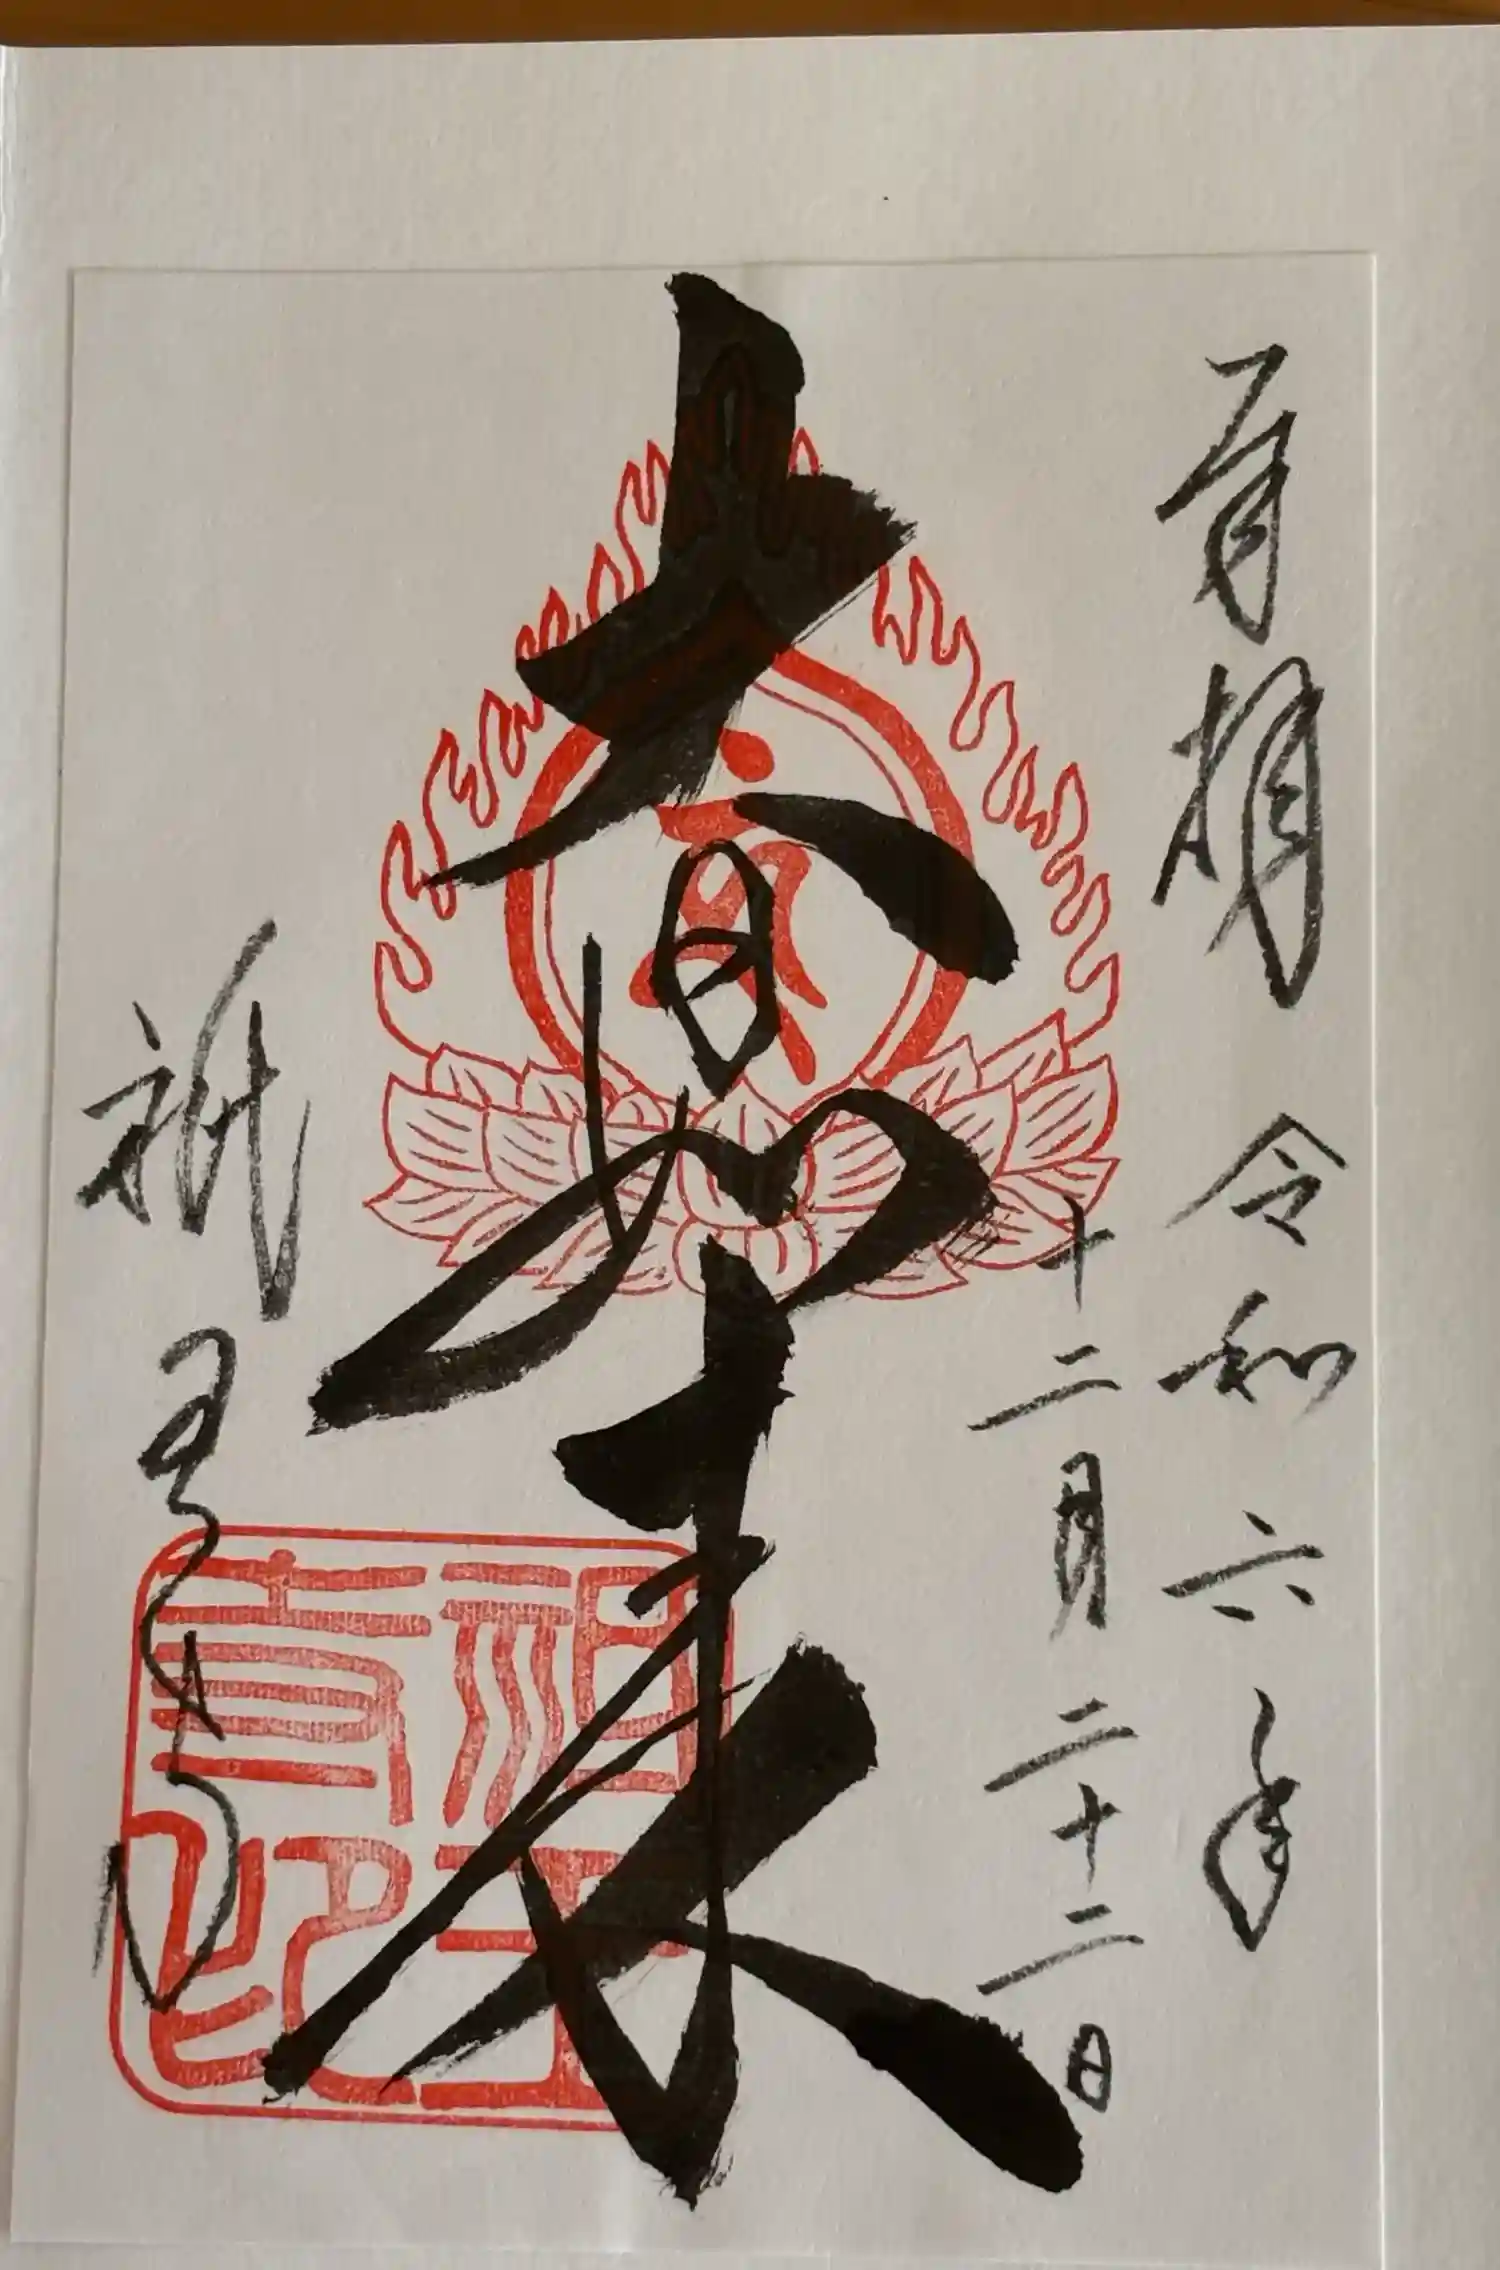 令和六年
十二月二十二日
大日如来
祇王寺
祇王寺印